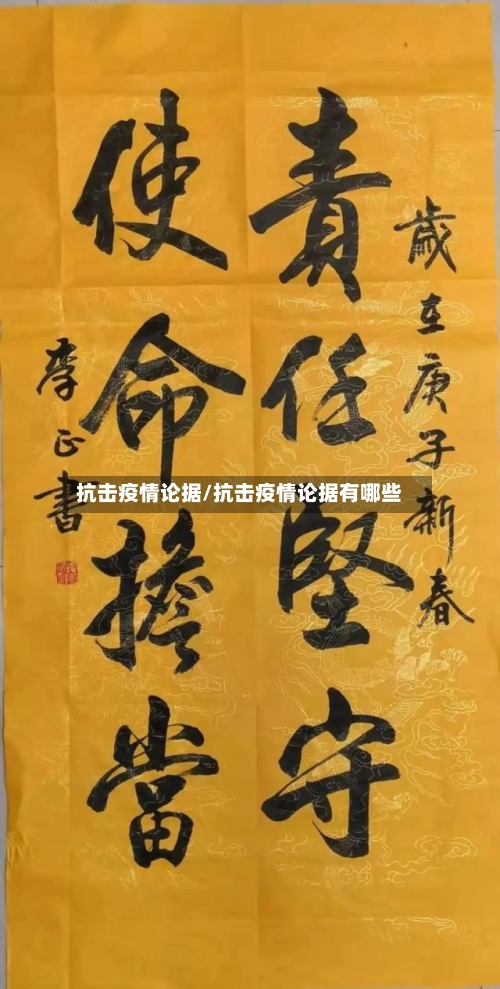 歲在庚子新春
責任堅守
使命擔當
李正書
抗击疫情论据/抗击疫情论据有哪些